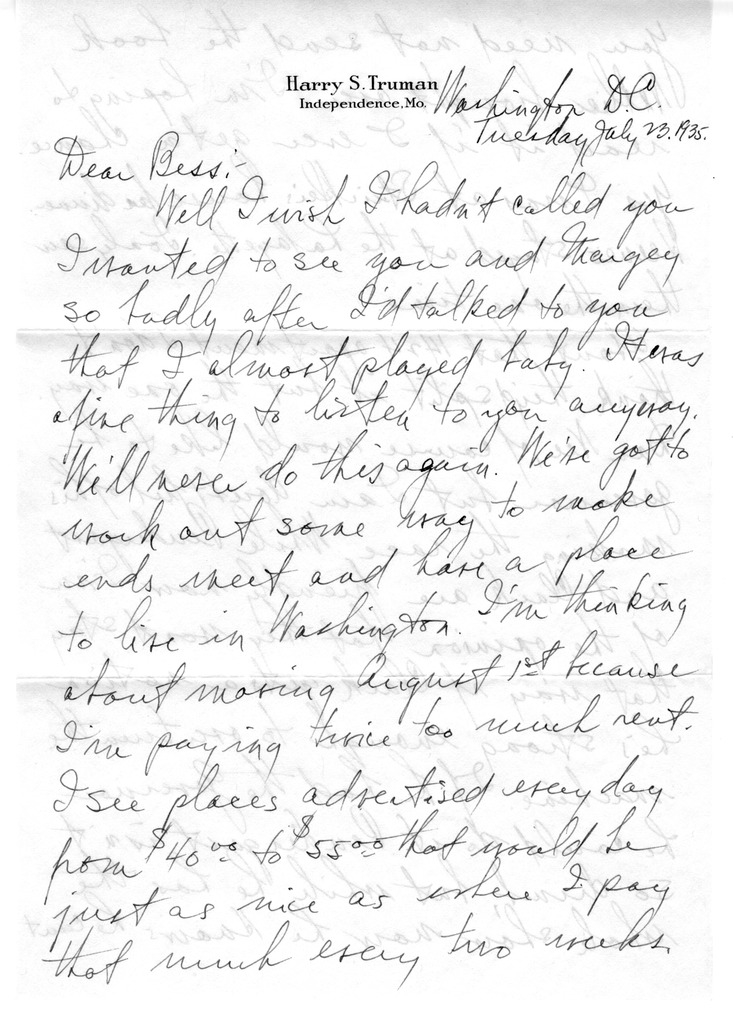 Harry S. Truman
Independence, Mo.
Washington D.C.
Tuesday July 23, 1935.
Dear Bess:-
Well I wish I hadn't called you
I wanted to see you and Margey
so badly after I'd talked to you
that I almost played baby. It was
a fine thing to listen to you anyway.
We'll never do this again. We've got to
work out some way to make
ends meet and have a place
to live in Washington. I'm thinking
about moving August 1st because
I'm paying twice too much rent.
I see places advertised every day
from $40 00 to $55 00 that would be
just as nice as where I pay
that much every two weeks.